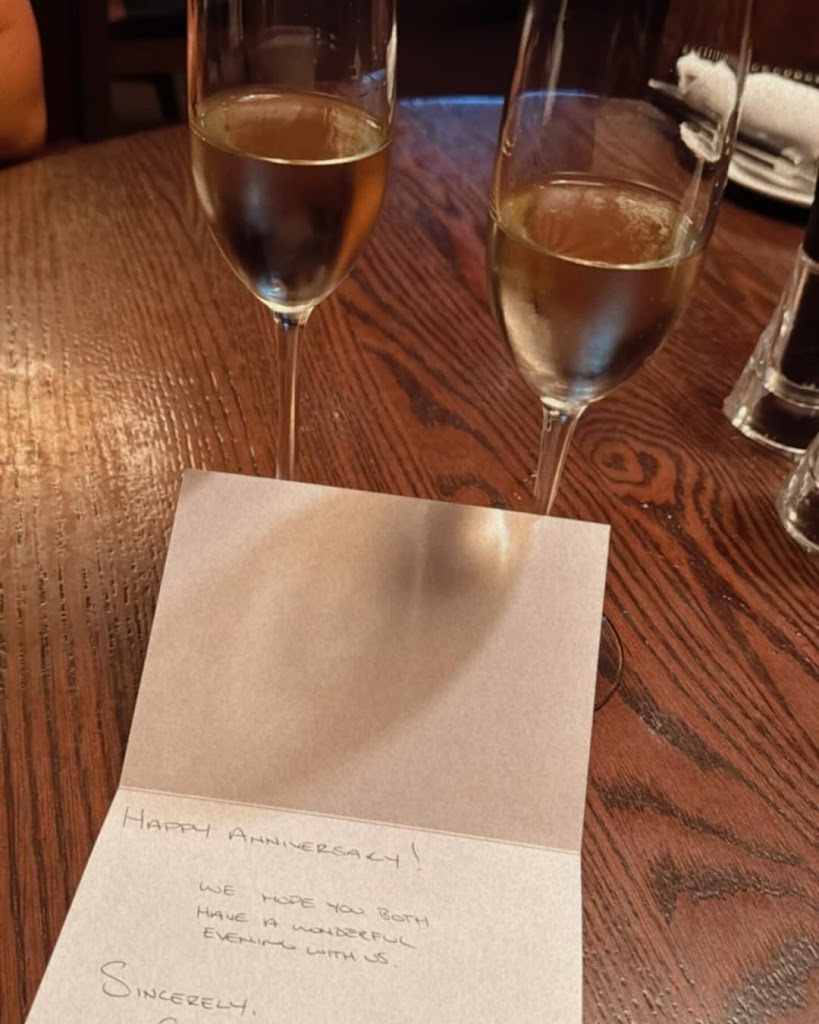 HAPPY ANNIVERSARY!
WE HOPE YOU BOTH
HAVE A WONDERFUL
EVENING WITH US.
SINCERELY,